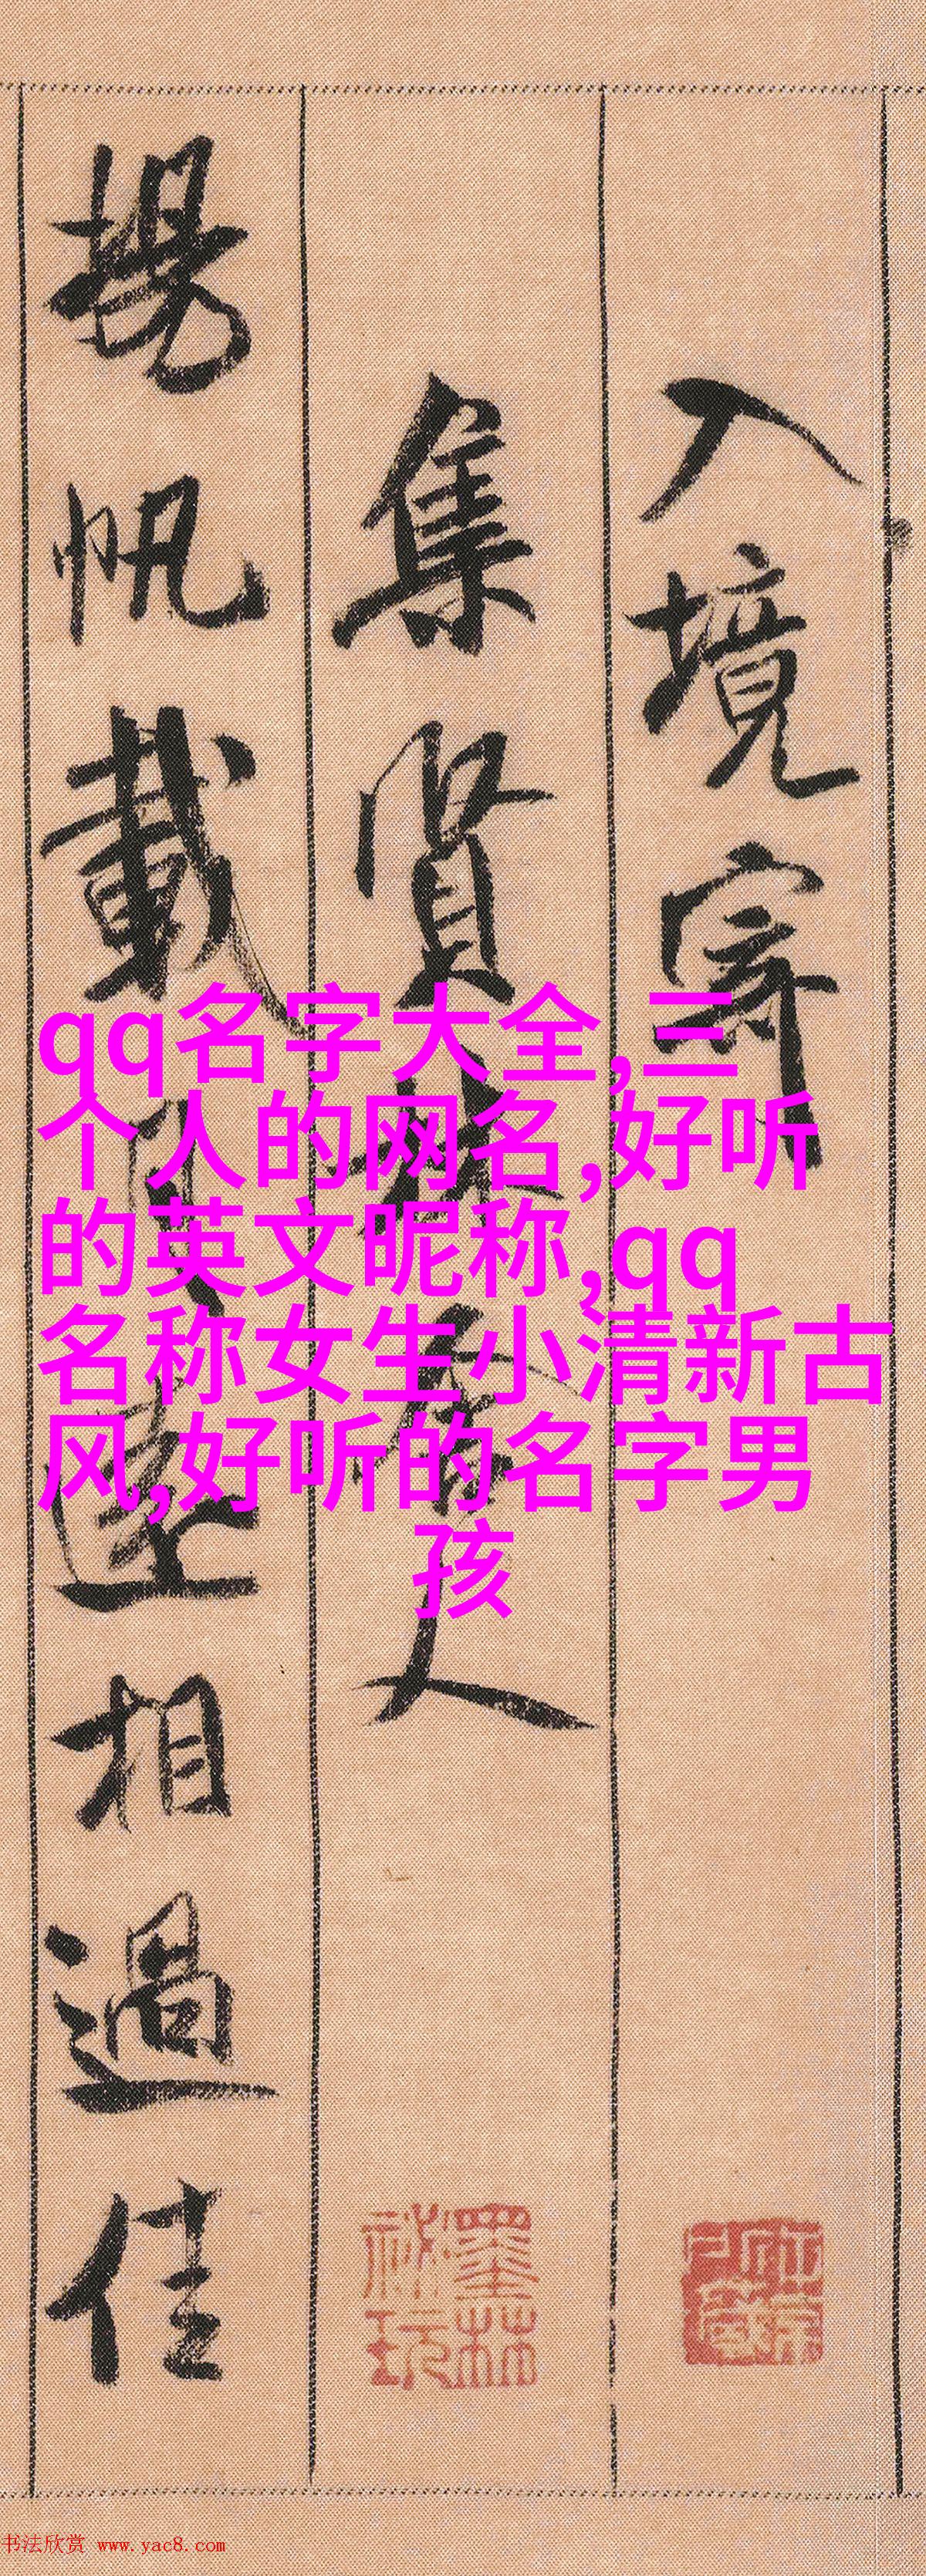 入境寄
集賢林舍人
揚帆載月遠相過佳
qq名字大全,三
个人的网名,好听
的英文昵称,qq
名称女生小清新古
风,好听的名字男
孩
墨林
祕玩
书法欣赏 www.yac8.com